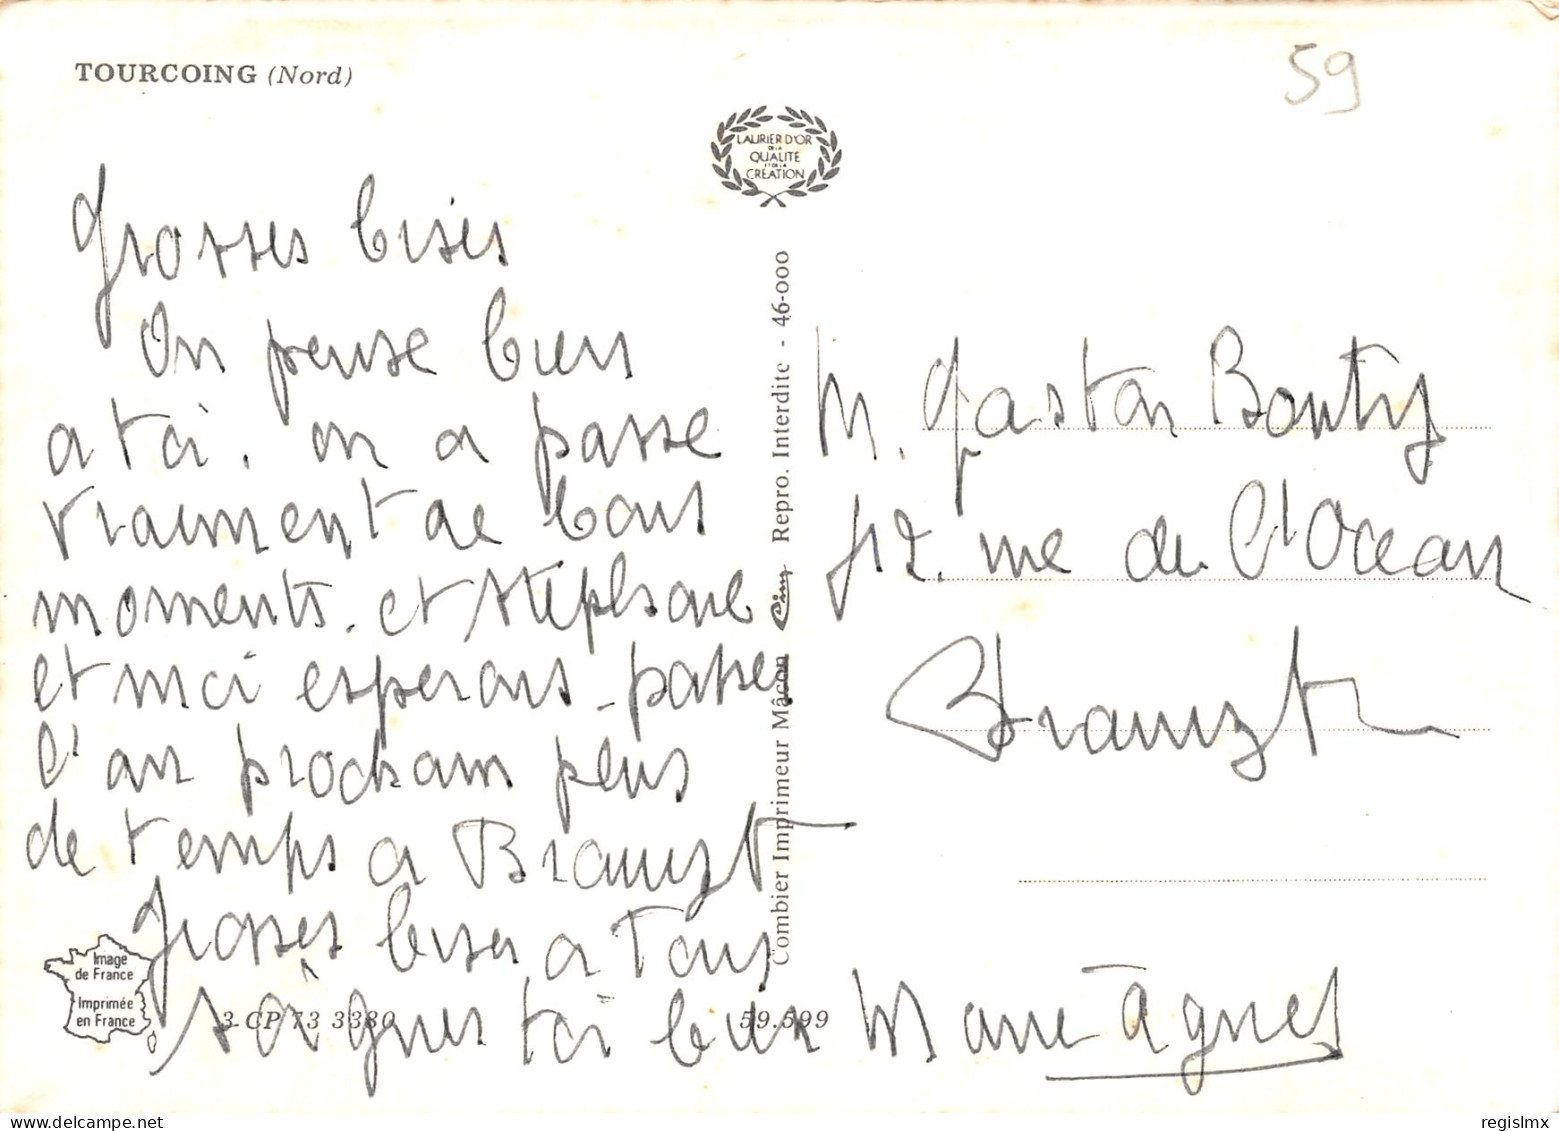 TOURCOING (Nord)
59
LAURIER D'OR
DE LA
QUALITE
ET DE LA
CRÉATION
Grosses bises
On pense bien
a toi. on a passe
vraiment de bons
moments. et Stéphane
et moi esperons passer
l'an prochain plus
de temps a
Grosses bises a Tous
soigne toi bien Marie Agnes
M. Gaston Bonty
12 rue de l'Océan
Combier Imprimeur Mâcon Cim Repro. Interdite - 46-000
Image
de France
Imprimée
en France
3-CP 73 3380
59.599
regislmx